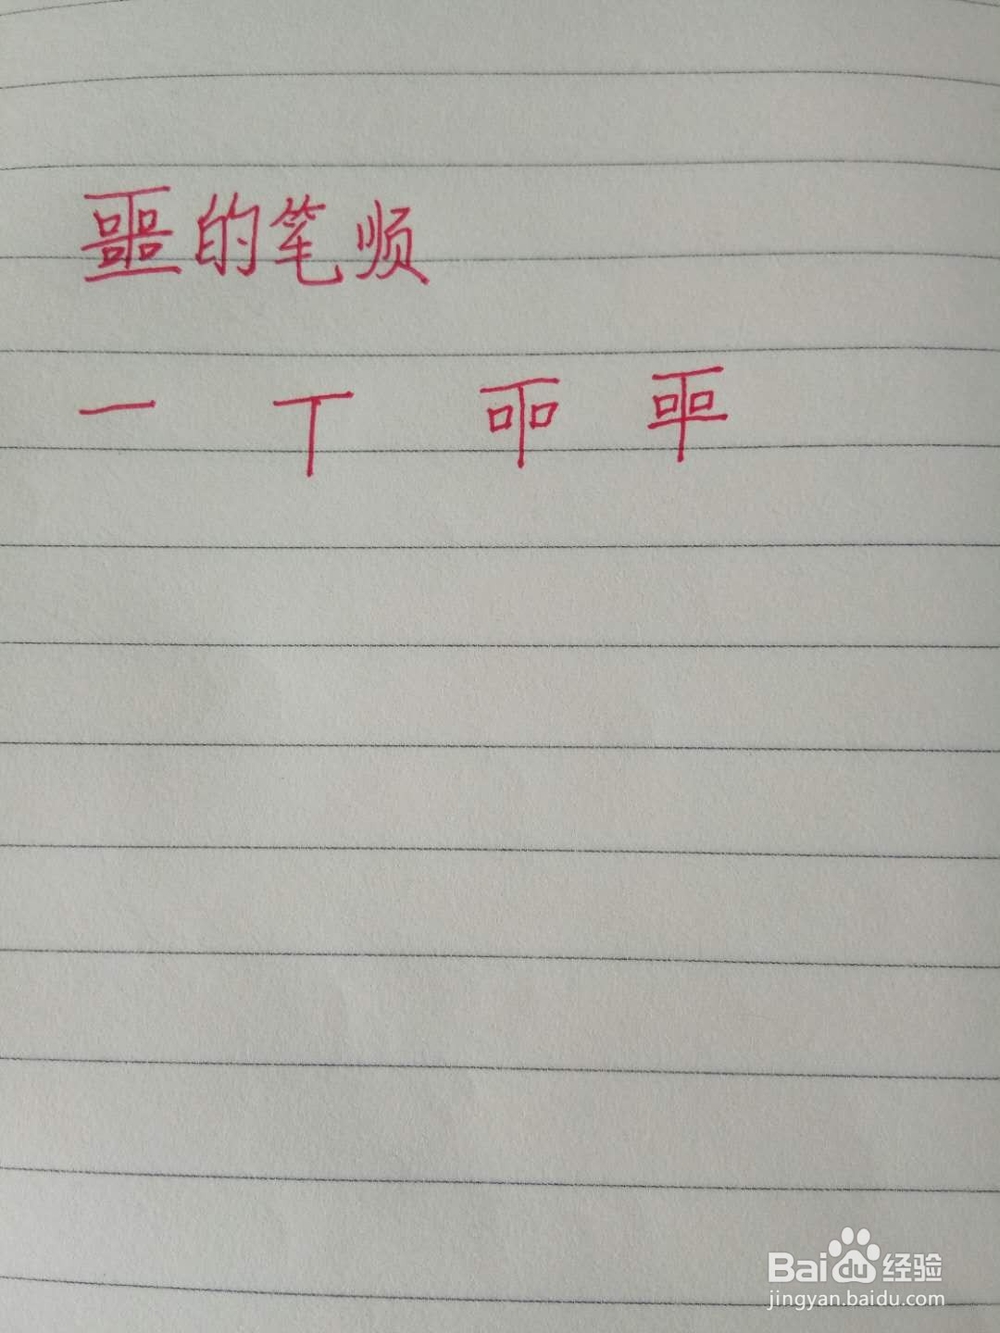 噩的笔顺
一 丅
Baidu经验
jingyan.baidu.com